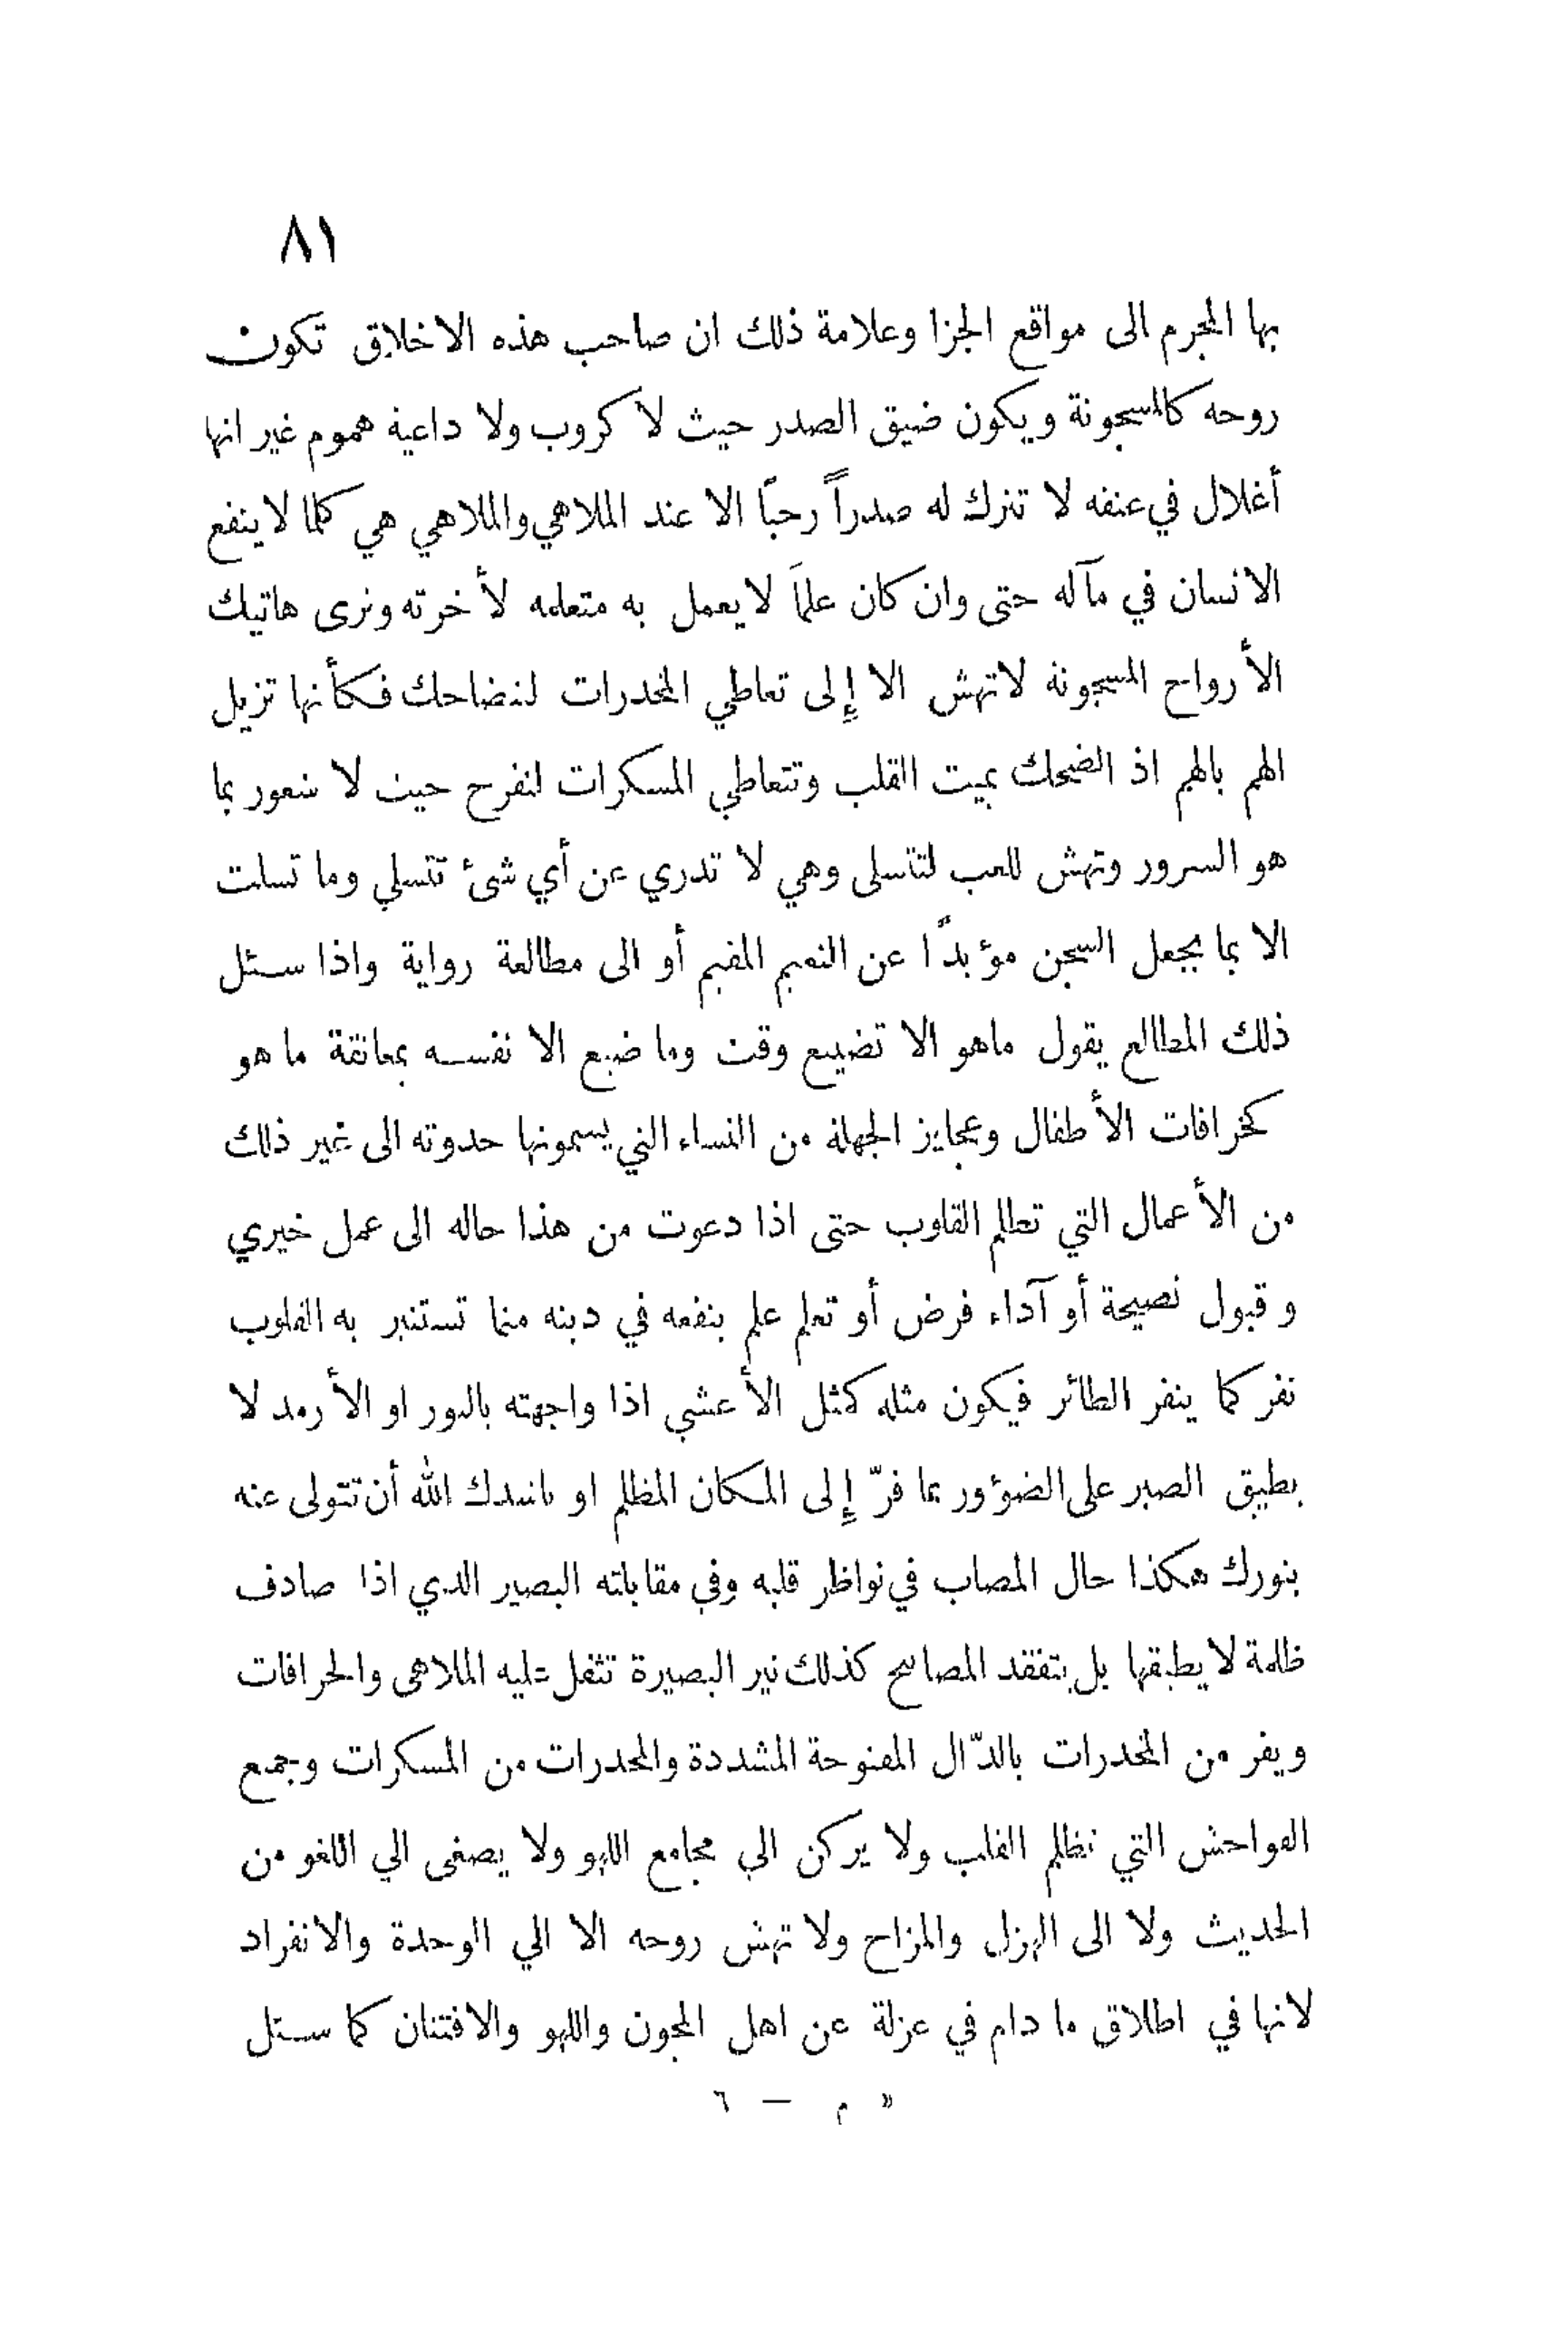 ٨١
بها المجرم الى مواقع الجزا وعلامة ذلك ان صاحب هذه الاخلاق تكون
روحه كالمسجونة ويكون ضيق الصدر حيث لا كروب ولا داعية هموم غير انها
أغلال في عنقه لا تترك له صدراً رحبًا الا عند الملاهي والملاهي هي كلما لا ينفع
الانسان في مآله حتى وان كان علمًا لا يعمل به متعلمه لأخرته ونرى هاتيك
الأرواح المسجونة لاتهش الا إلى تعاطي المخدرات لتضاحك فكأنها تزيل
الهم بالهم اذ الضحك يميت القلب وتتعاطي المسكرات لتفرح حيث لا شعور بما
هو السرور وتهش للعب لتتسلى وهي لا تدري عن أي شئ تتسلي وما تسلت
الا بما يجعل السجن مؤبدًا عن النعيم المقيم أو الى مطالعة رواية واذا سئل
ذلك المطالع يقول ماهو الا تضييع وقت وما ضيع الا نفسه بمعانقة ما هو
كخرافات الأطفال وعجايز الجهلة من النساء التي يسمونها حدوته الى غير ذلك
من الأعمال التي تظلم القلوب حتى اذا دعوت من هذا حاله الى عمل خيري
وقبول نصيحة أو آداء فرض أو تعلم علم ينفعه في دينه مما تستنير به القلوب
نفر كما ينفر الطائر فيكون مثله كمثل الأعشي اذا واجهته بالنور او الأرمد لا
يطيق الصبر على الضوؤ وربما فرّ إلى المكان المظلم او ناشدك الله أن تتولى عنه
بنورك هكذا حال المصاب في نواظر قلبه وفي مقابلته البصير الذي اذا صادف
ظلمة لا يطيقها بل يتفقد المصابيح كذلك نير البصيرة تثقل عليه الملاهى والخرافات
ويفر من المخدرات بالدّال المفتوحة المشددة والمخدرات من المسكرات وجميع
الفواحش التي تظلم القلب ولا يركن الي مجامع اللهو ولا يصغى الي اللغو من
الحديث ولا الى الهزل والمزاح ولا تهش روحه الا الي الوحدة والانفراد
لانها في اطلاق ما دام في عزلة عن اهل المجون واللهو والافتتان كما سئل
« م — ٦